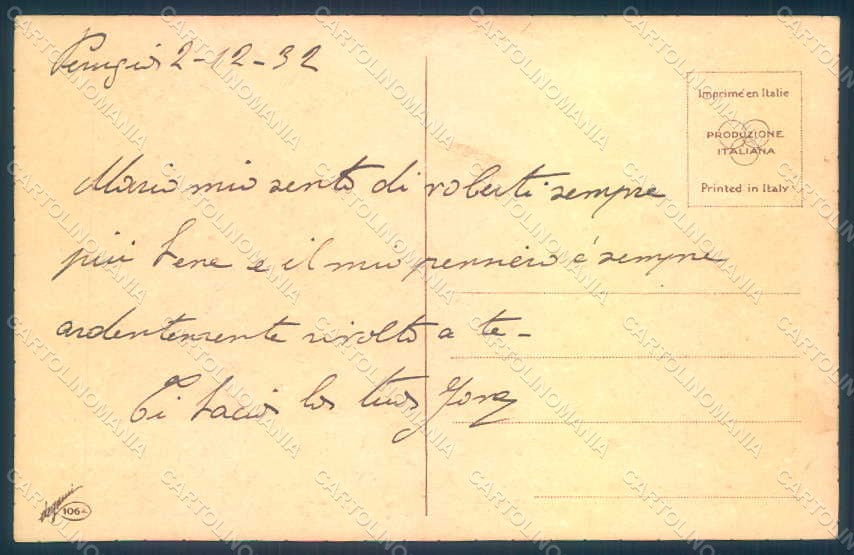 Perugia 2-12-32
Imprimé en Italie
PRODUZIONE
ITALIANA
Printed in Italy
Mario mio sento di volerti sempre
più bene e il mio pensiero è sempre
ardentemente rivolto a te -
Ti bacio la tua
106
CARTOLINOMANIA